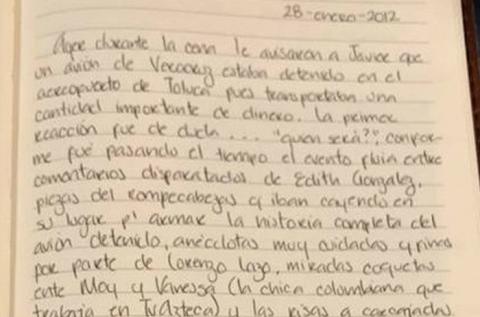 28-enero-2012
Ayer durante la cena le avisaron a Javier que
un avión de Veracruz estaban detenido en el
aereopuerto de Toluca pues transportaban una
cantidad importante de dinero. La primer
reacción fue de duda... "quien será?", confor-
me fué pasando el tiempo el evento fluia entre
comentarios disparatados de Edith González,
piezas del rompecabezas q' iban cayendo en
su lugar p' armar la historia completa del
avión detenido, anécdotas muy cuidadas y
por parte de Lorenzo Lazo, miradas coquetas
ente Moy y Vanessa (la chica colombiana que
trabaja en TvAzteca) y las risas a carcajadas